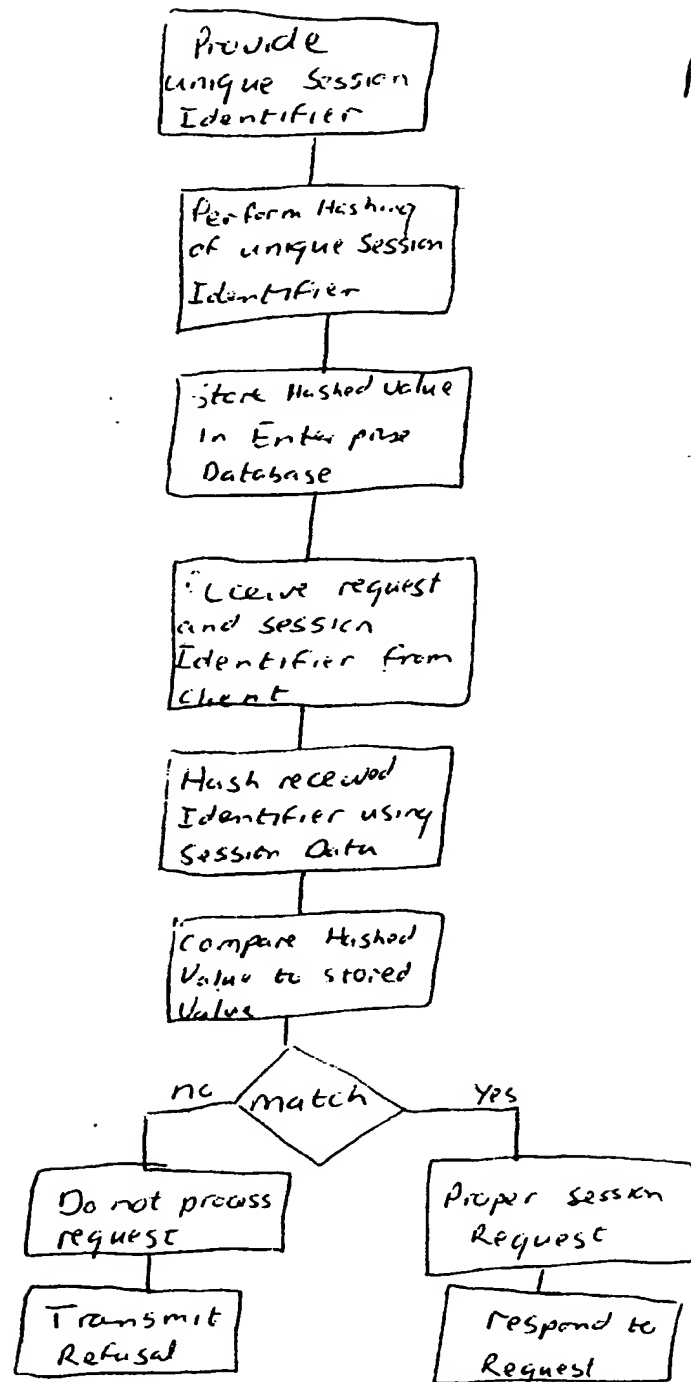 Provide
unique Session
Identifier
Perform Hashing
of unique Session
Identifier
Store Hashed Value
In Enterprise
Database
Receive request
and session
Identifier from
client
Hash received
Identifier using
Session Data
Compare Hashed
Value to stored
Value
no
match
Yes
Do not process
request
Proper session
Request
Transmit
Refusal
respond to
Request